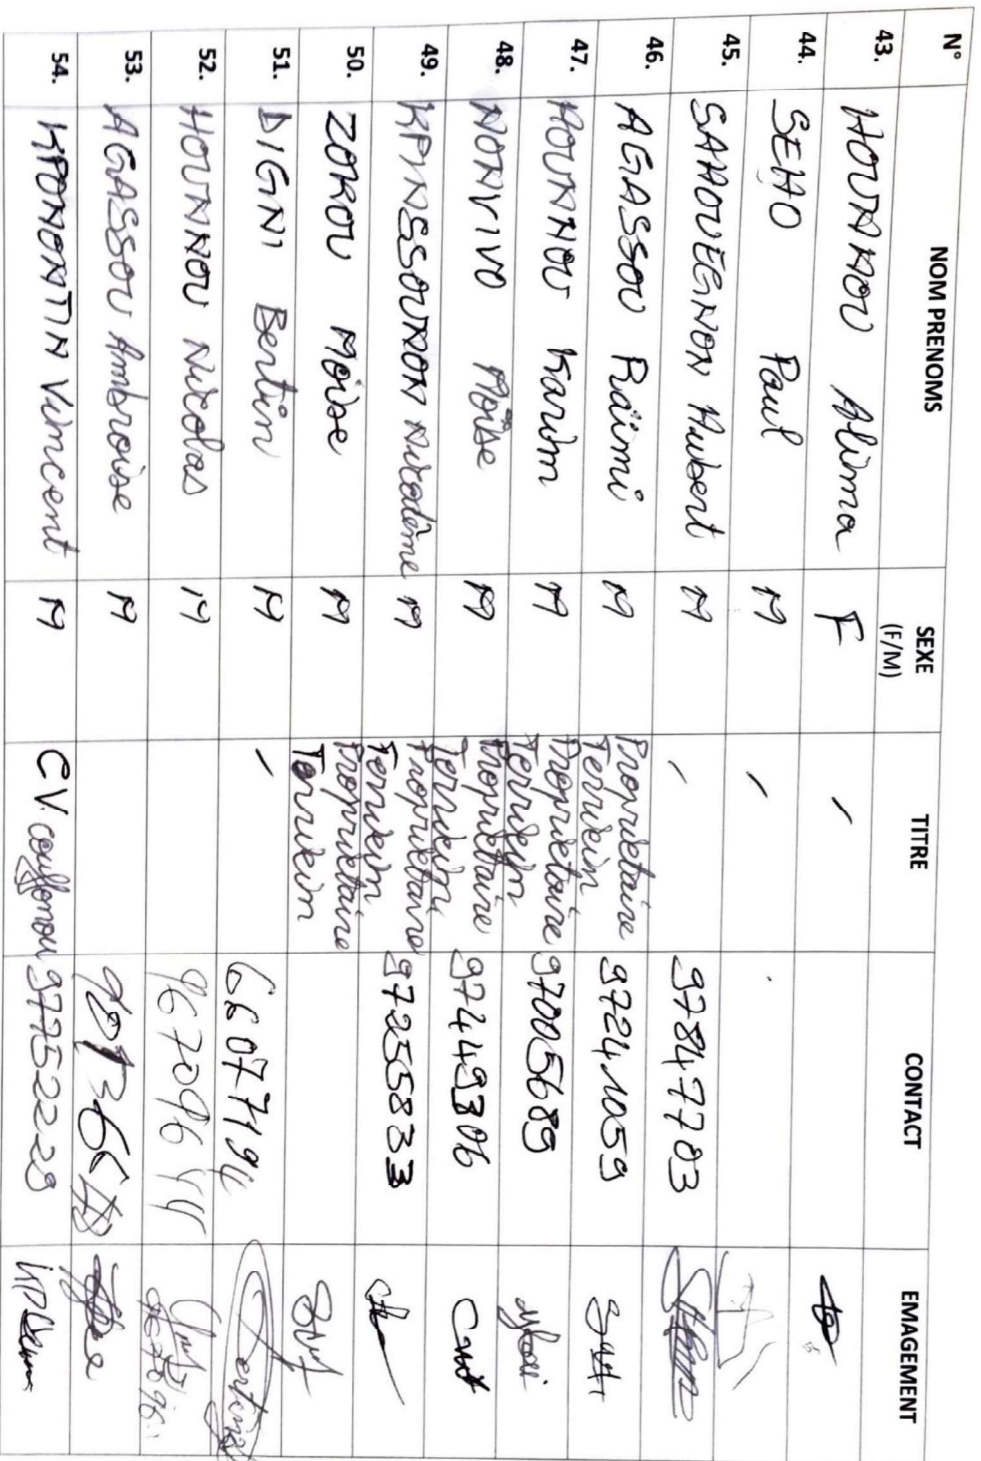 N° NOM PRENOMS SEXE (F/M) TITRE CONTACT EMAGEMENT
43. HOUNNOU Alima F -
44. SEHO Paul M -
45. SAHOUEGNON Hubert M - 97847783
46. AGASSOU Raïmi M Proprietaire Terrien 97241059
47. HOUNNOU Karim M Proprietaire Terrien 97005689
48. NONVIVO Moïse M Proprietaire Terrien 97449306
49. KPINSSOUNON Nicodème M Proprietaire Terrien 97255833
50. ZOKOU Moïse M Proprietaire Terrien
51. DIGNI Bertin M - 66077194
52. HOUNNOU Nicolas M 96709644
53. AGASSOU Ambroise M
54. KPONONTIN Vincent M CV 97752229